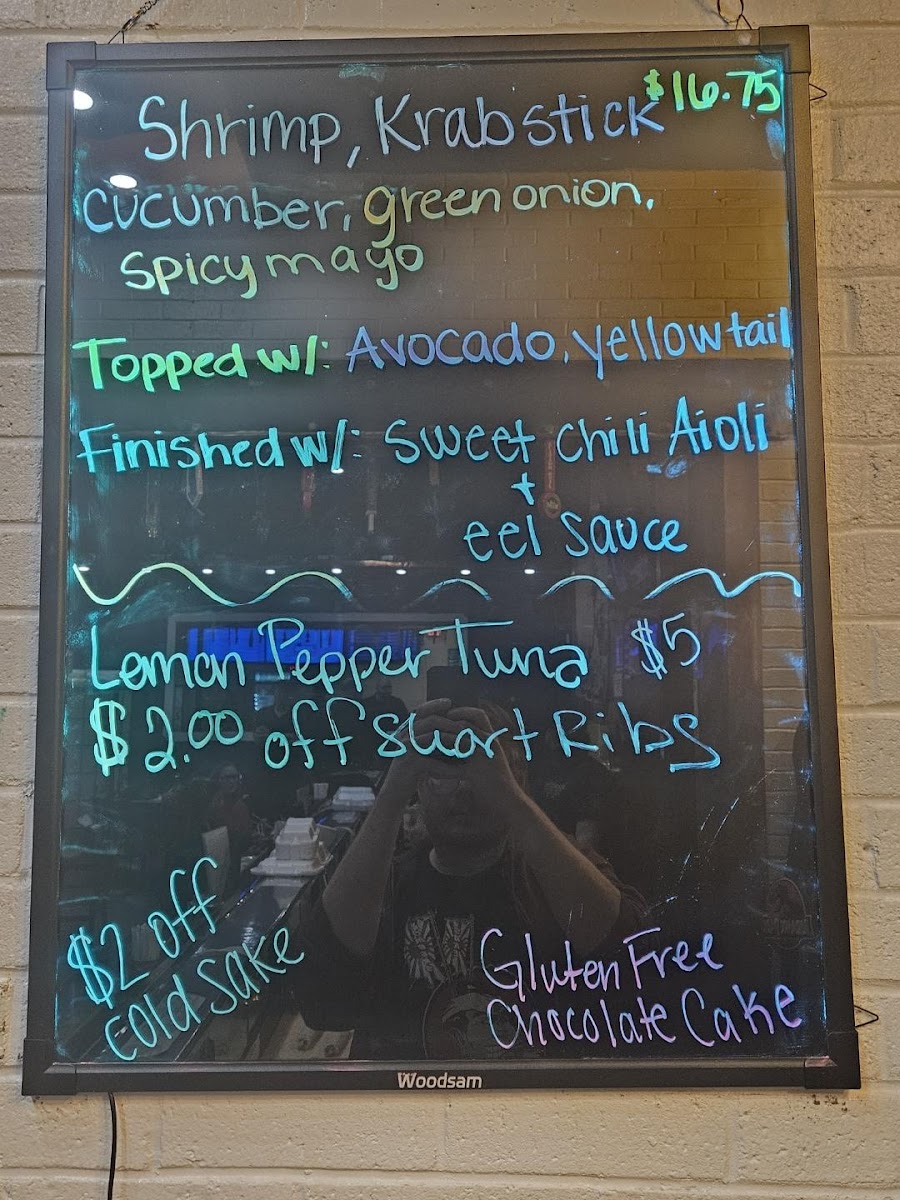 Shrimp, Krabstick $16.75
cucumber, green onion,
spicy mayo
Topped w/: Avocado, yellowtail
Finished w/: sweet chili Aioli
+
eel sauce
Lemon Pepper Tuna $5
$2.00 off Short Ribs
$2 off
cold sake
Gluten Free
Chocolate Cake
Woodsam